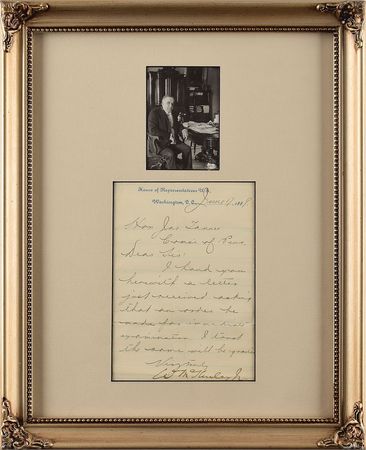 House of Representatives U.S.,
Washington, D.C. June 4, 1889
Hon Jas Tanner
Comr of Pens.
Dear Sir:
I hand you
herewith a letter
just received asking
that an order be
made for
examination. I trust
the same will be
Very truly
W McKinley Jr